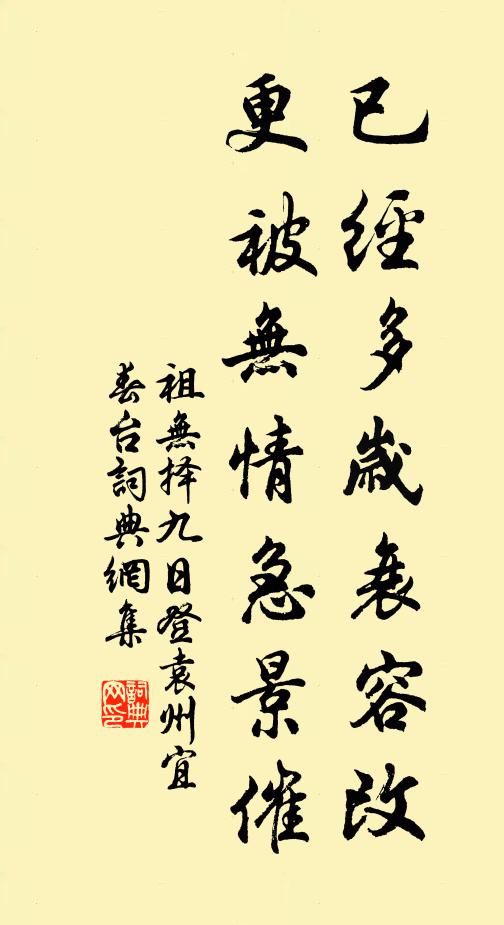 已經多歲衰容改
更被無情急景催
祖無择九日登袁州宜
春台詞典網集
詞典